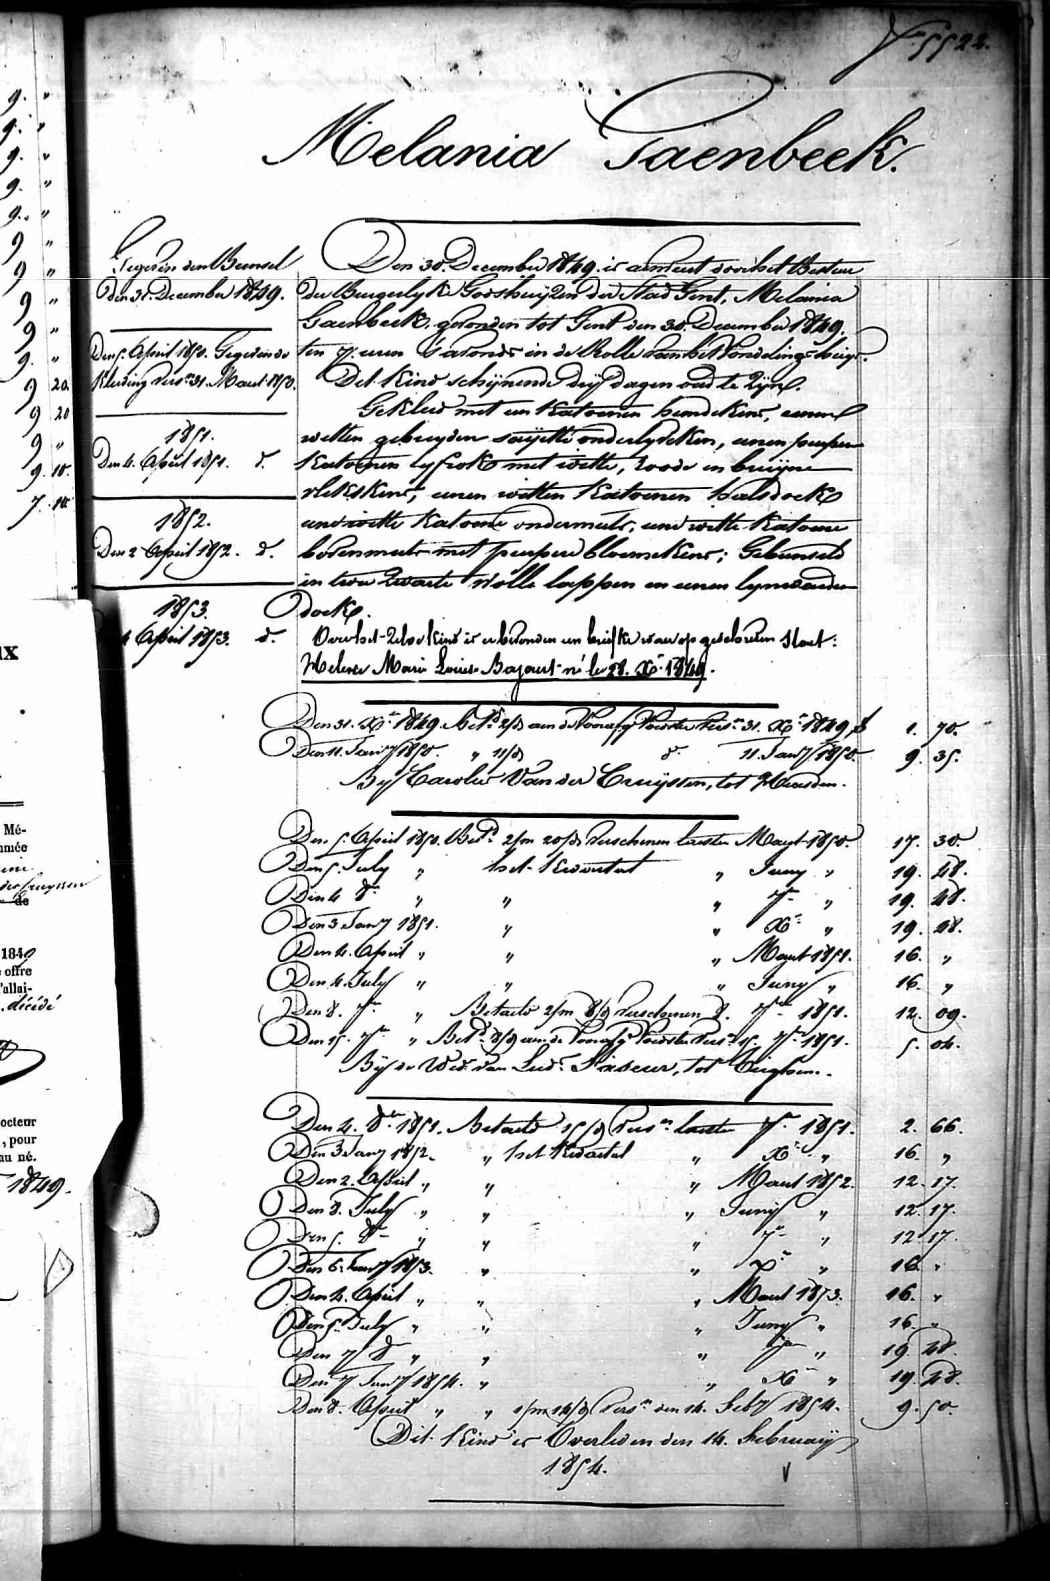 N.° 5522.
Melania Gaenbeek.
Gegeven den Bunsel
den 31. December 1849.
Den 5. April 1850. Gegeven de
Kleeding vers.n 31. Maart 1850.
1851.
Den 4. April 1851. d.°
1852.
Den 2 April 1852. d.°
1853.
4 April 1853. d.°
Den 30. December 1849. is aenveert door het Bestuer
der Burgerlyke Godshuyzen der Stad Gent, Melania
Gaenbeek, gevonden tot Gent den 30. December 1849.
ten 7. uren 's avonds in de Rolle van het Vondelingshuys.
Dit Kind schynende dry dagen oud te Zyn.
Gekleed met een Katoenen hemdeken, eenen
witten gebreyden onderlyfeken, eenen purper
Katoenen lyfrok met witte, roode en bruyne
vlekskens, eenen witten Katoenen halsdoek
eene witte Katoene ondermuts, eene witte Katoene
bovenmuts met purpere bloemekens; Gebunseld
in twee Zwarte Wolle lappen en eenen lynwaeden
doek.
Over het Zelve Kind is er bevonden een briefke waerop geschreven staet:
Helene Marie Louise né le 28. X.e 1849.
Den 31. X.er 1849. Bet.d 2/d aen de Voorafg. Voedster vers.n 31. X.er 1849 f 1. 70.
Den 11. Jan.y 1850. " 11/d d.° 11. Jan.y 1850. 9. 35.
By Carolus Van der Cruyssen, tot Heusden.
Den 5. April 1850. Bet.d 2/m 20/d verschenen lasten Maart 1850. 17. 30.
Den 5. July " het Kwartal " Juny " 19. 48.
Den 4 8.er " " " 7.er " 19. 48.
Den 3 Jan.y 1851. " " X.er " 19. 48.
Den 4. April " " " Maart 1851. 16. "
Den 4. July " " " Juny " 16. "
Den 8. 7.er " Betaeld 2/m 8/d verschenen 8. 7.er 1851. 12. 09.
Den 15. 7.er " Bet.d 8/d aen de Voorafg. Voedster vers.n 15. 7.er 1851. 5. 04.
By de Wed.e van Lud.s tot
Den 4. 8.er 1851. Betaeld 15/d vers.n lasten 7.er 1851. 2. 66.
Den 3 Jan.y 1852. " het Kwartal " X.er " 16. "
Den 2. April " " " Maart 1852. 12. 17.
Den 8. July " " " Juny " 12. 17.
Den 5. 8.er " " " 7.er " 12. 17.
Den 6. Jan.y 1853. " " X.er " 16. "
Den 4. April " " " Maart 1853. 16. "
Den 5. July " " " Juny " 16. "
Den 7 8.er " " " 7.er " 19. 48.
Den 7 Jan.y 1854. " " X.er " 19. 48.
Den 8. April " " 1/m 14/d vers.n den 14. Feb.y 1854. 9. 50.
Dit Kind is Overleden den 14. February
1854.